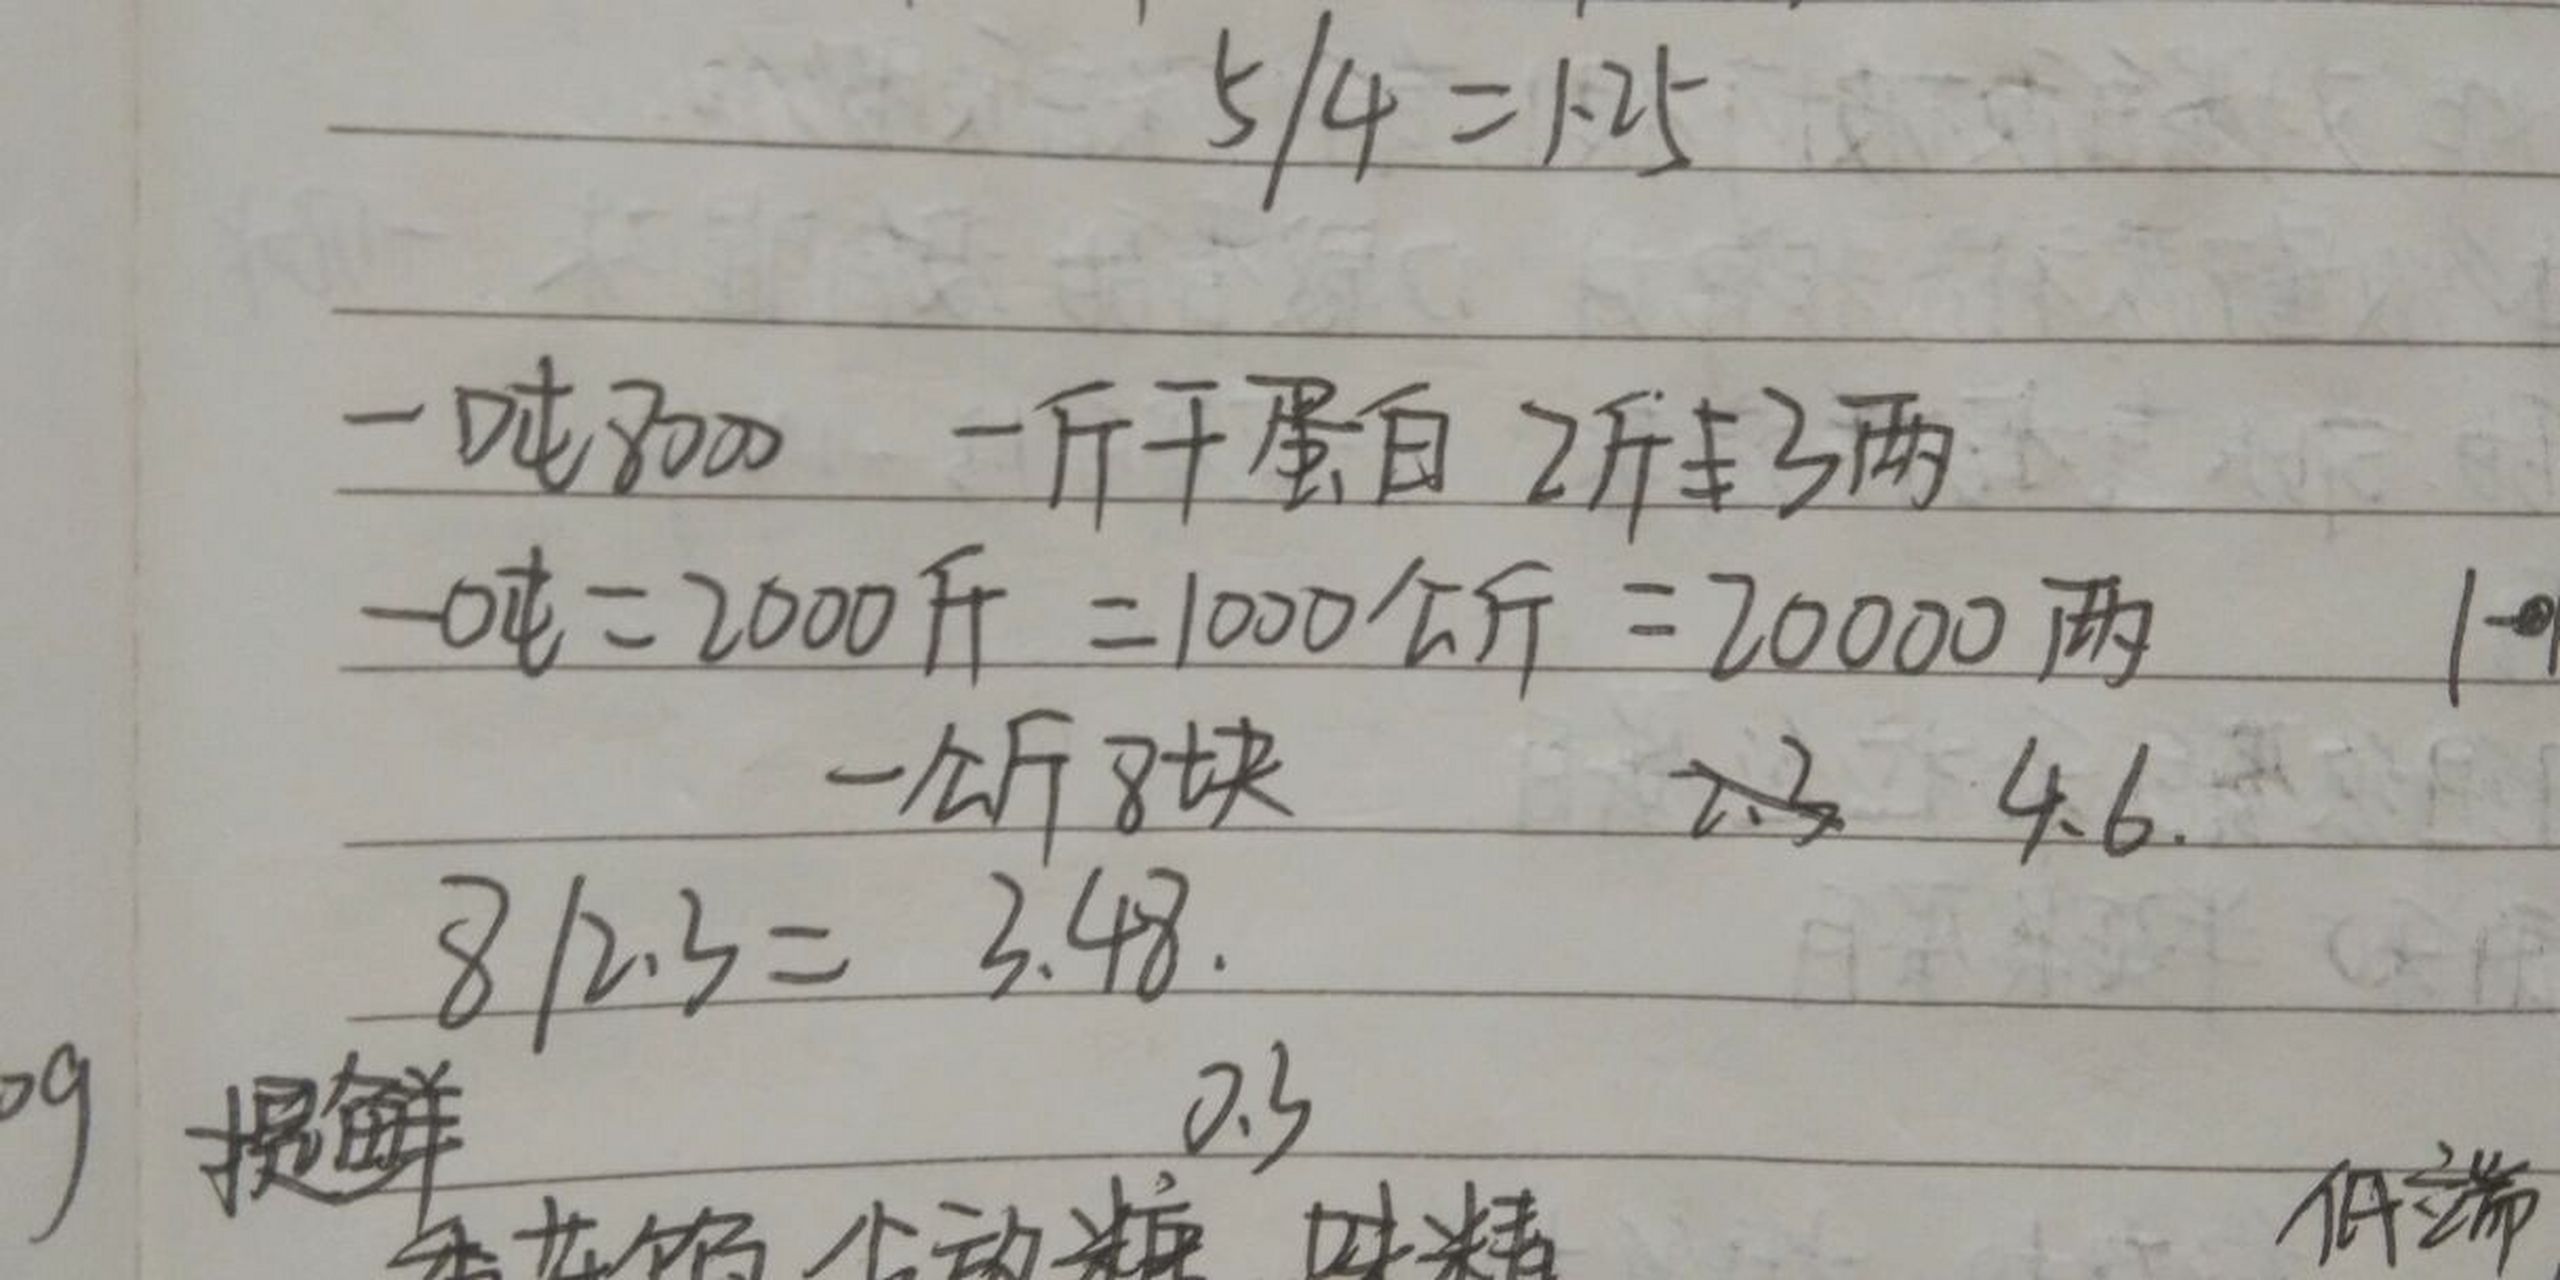 5/4=1.25
一吨8000 一斤干蛋白 2斤3两
一吨=2000斤 =1000公斤 =20000两
一公斤8块 2.3 4.6.
8/2.3= 3.48.
0g 提鲜 0.3
糖 味精 低端